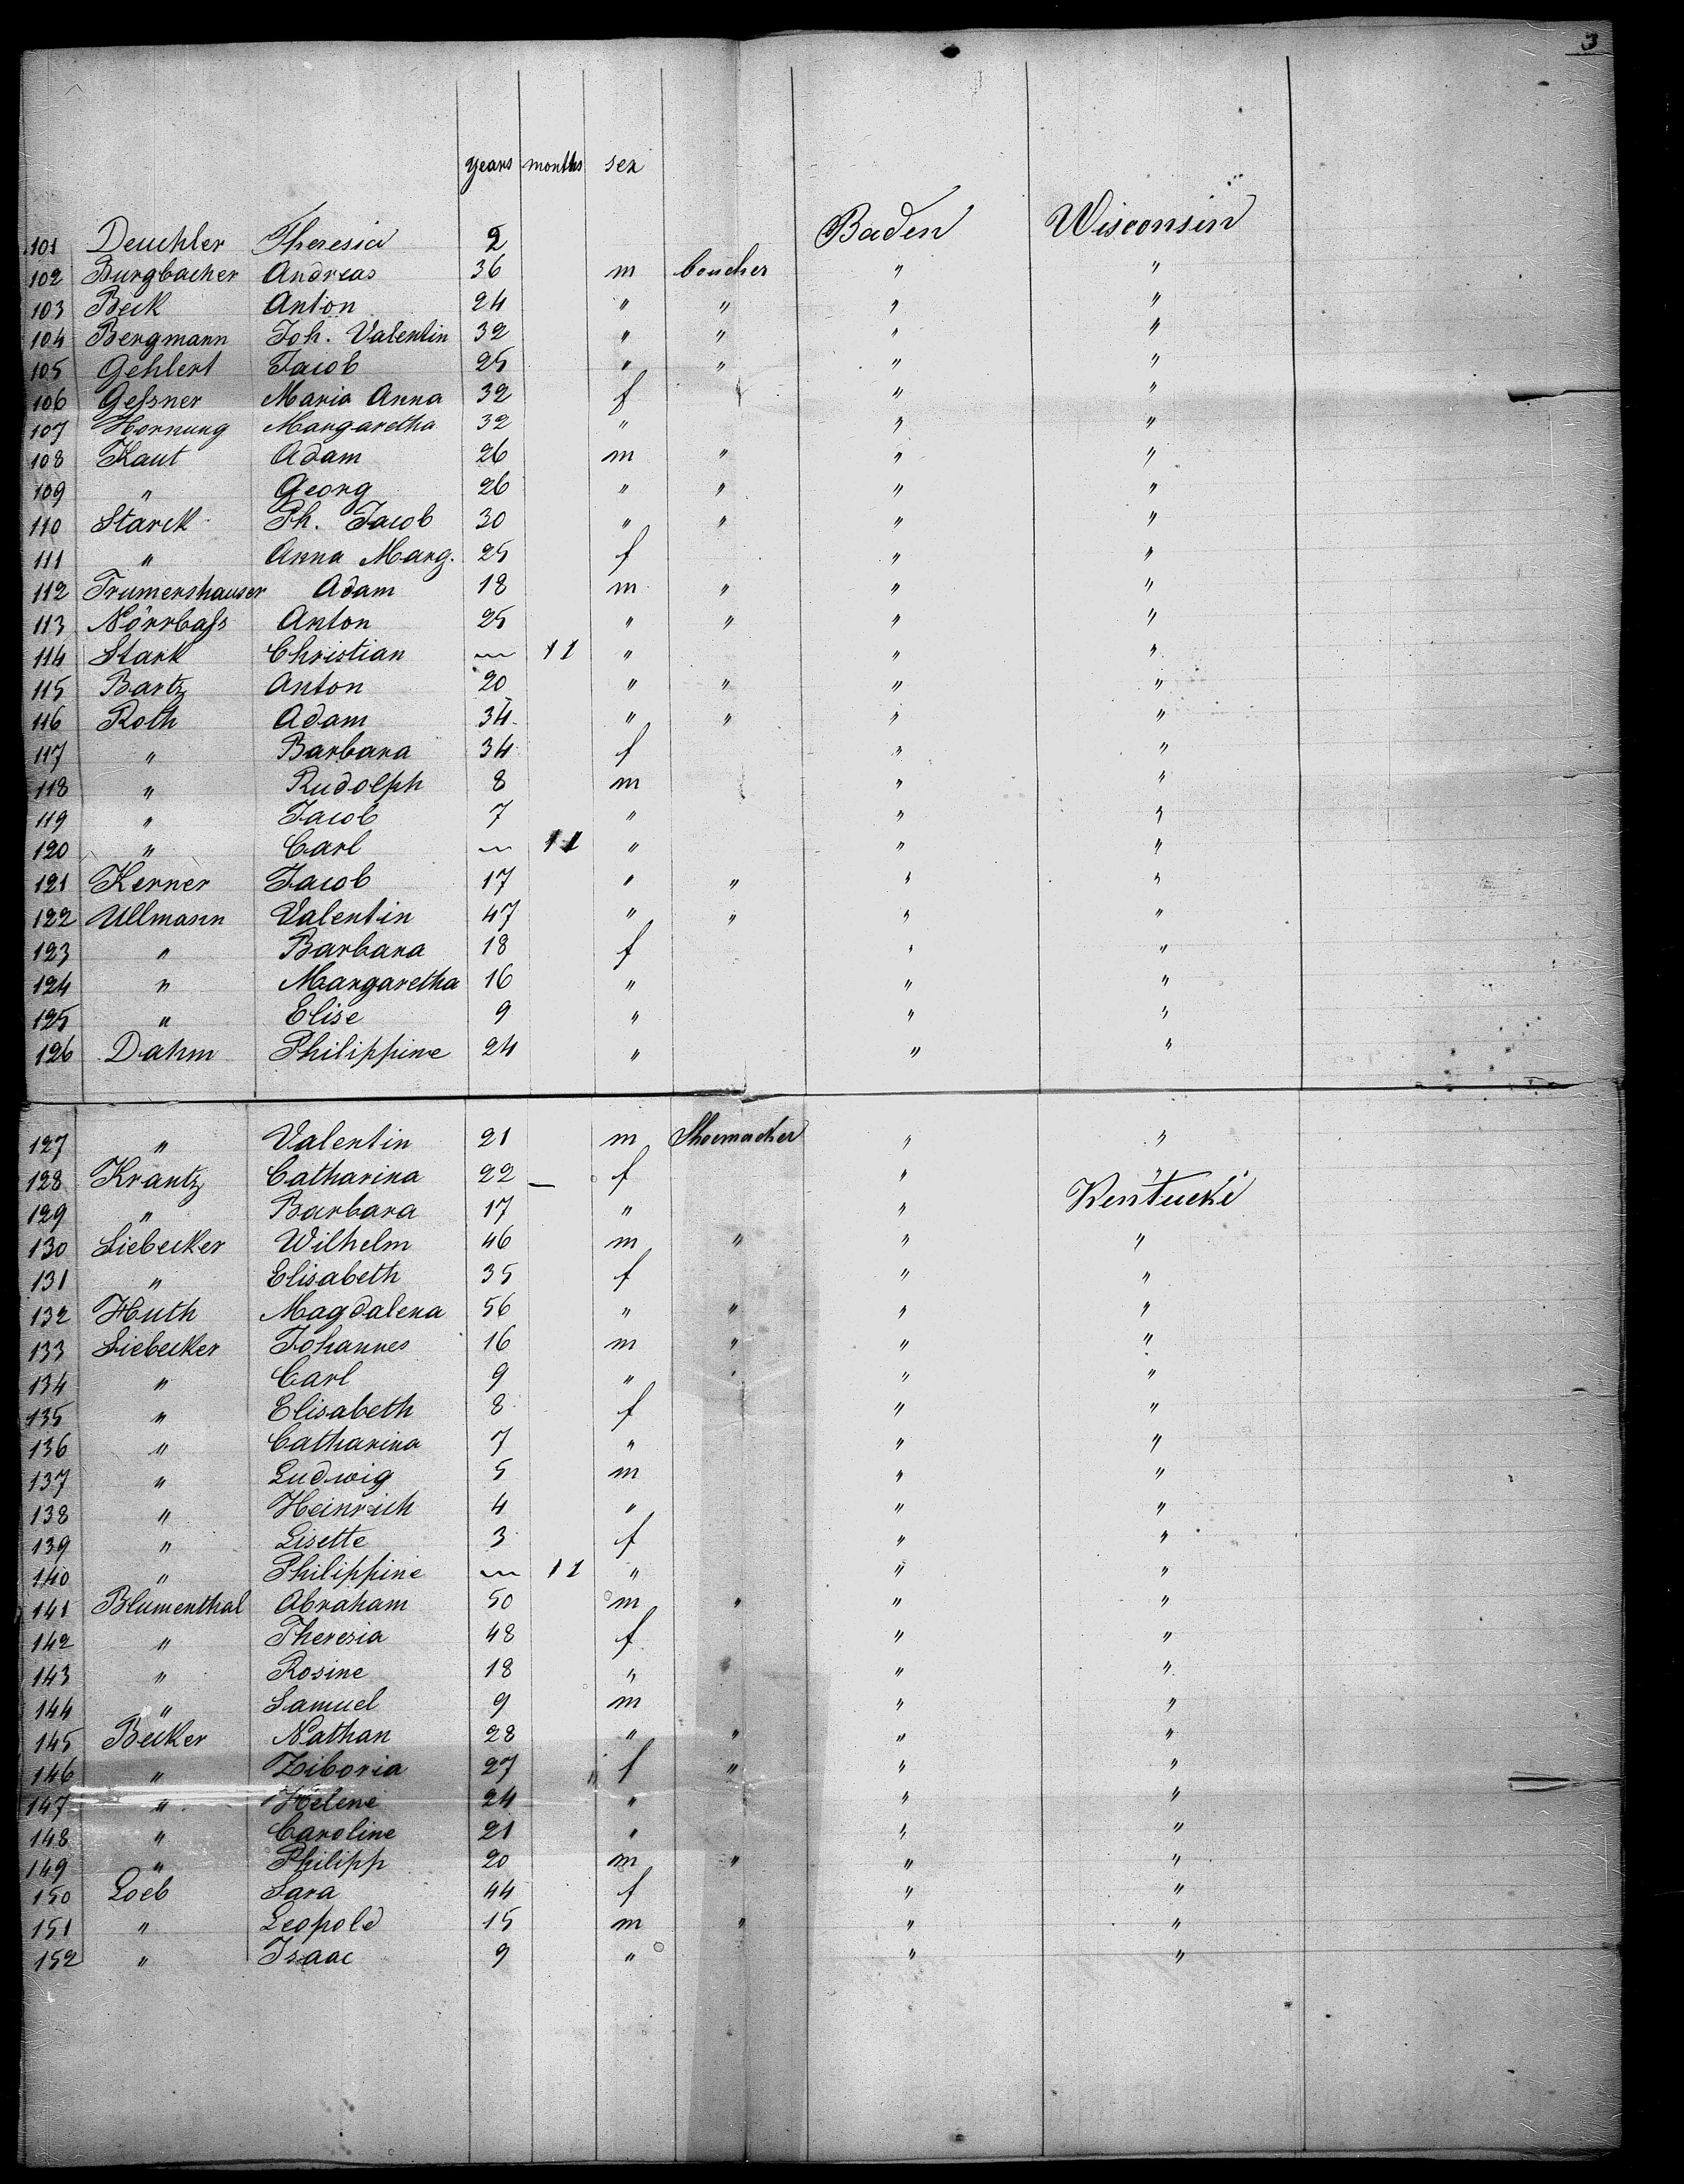 3
years months sex
101 Deuchler Theresia 2 Baden Wisconsin
102 Burgbacher Andreas 36 m boucher " "
103 Beck Anton 24 " " " "
104 Bergmann Joh. Valentin 32 " " " "
105 Gehlert Jacob 25 " " " "
106 Geßner Maria Anna 32 f " "
107 Hornung Margaretha 32 " " "
108 Kaut Adam 26 m " " "
109 " Georg 26 " " " "
110 Starck Ph. Jacob 30 " " " "
111 " Anna Marg. 25 f " "
112 Trumershauser Adam 18 m " " "
113 Nörrbaß Anton 25 " " " "
114 Stark Christian — 11 " " "
115 Bartz Anton 20 " " " "
116 Roth Adam 34 " " " "
117 " Barbara 34 f " "
118 " Rudolph 8 m " "
119 " Jacob 7 " " "
120 " Carl — 11 " " "
121 Kerner Jacob 17 " " " "
122 Ullmann Valentin 47 " " " "
123 " Barbara 18 f " "
124 " Margaretha 16 " " "
125 " Elise 9 " " "
126 Dahm Philippine 24 " " "
127 " Valentin 21 m Shoemacher " "
128 Krantz Catharina 22 — f " "
129 " Barbara 17 " " Kentucki
130 Liebecker Wilhelm 46 m " " "
131 " Elisabeth 35 f " "
132 Huth Magdalena 56 " " " "
133 Liebecker Johannes 16 m " " "
134 " Carl 9 " " " "
135 " Elisabeth 8 f " "
136 " Catharina 7 " " "
137 " Ludwig 5 m " "
138 " Heinrich 4 " " "
139 " Lisette 3 f " "
140 " Philippine — 11 " " "
141 Blumenthal Abraham 50 m " " "
142 " Theresia 48 f " "
143 " Rosine 18 " " " "
144 " Samuel 9 m " "
145 Becker Nathan 28 " " " "
146 " Ziboria 27 f " " "
147 " Helene 24 " " "
148 " Caroline 21 " " "
149 " Philipp 20 m " " "
150 Loeb Sara 44 f " "
151 " Leopold 15 m " " "
152 " Isaac 9 " " "